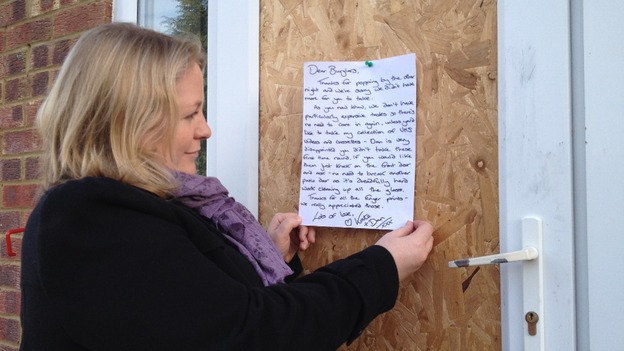 Dear Burglars,
Thanks for popping by the other
night and we're sorry we didn't have
more for you to take.
As you now know, we don't have
particularly expensive tastes so there's
no need to come in again, unless you'd
like to take my collection of VHS
videos and cassettes - Dan is very
disappointed you didn't take these
first time round. If you would like
them just knock on the front door
and ask - no need to break another
patio door as it's dreadfully hard
work cleaning up all the glass.
Thanks for all the finger prints -
we really appreciated those.
Lots of love,